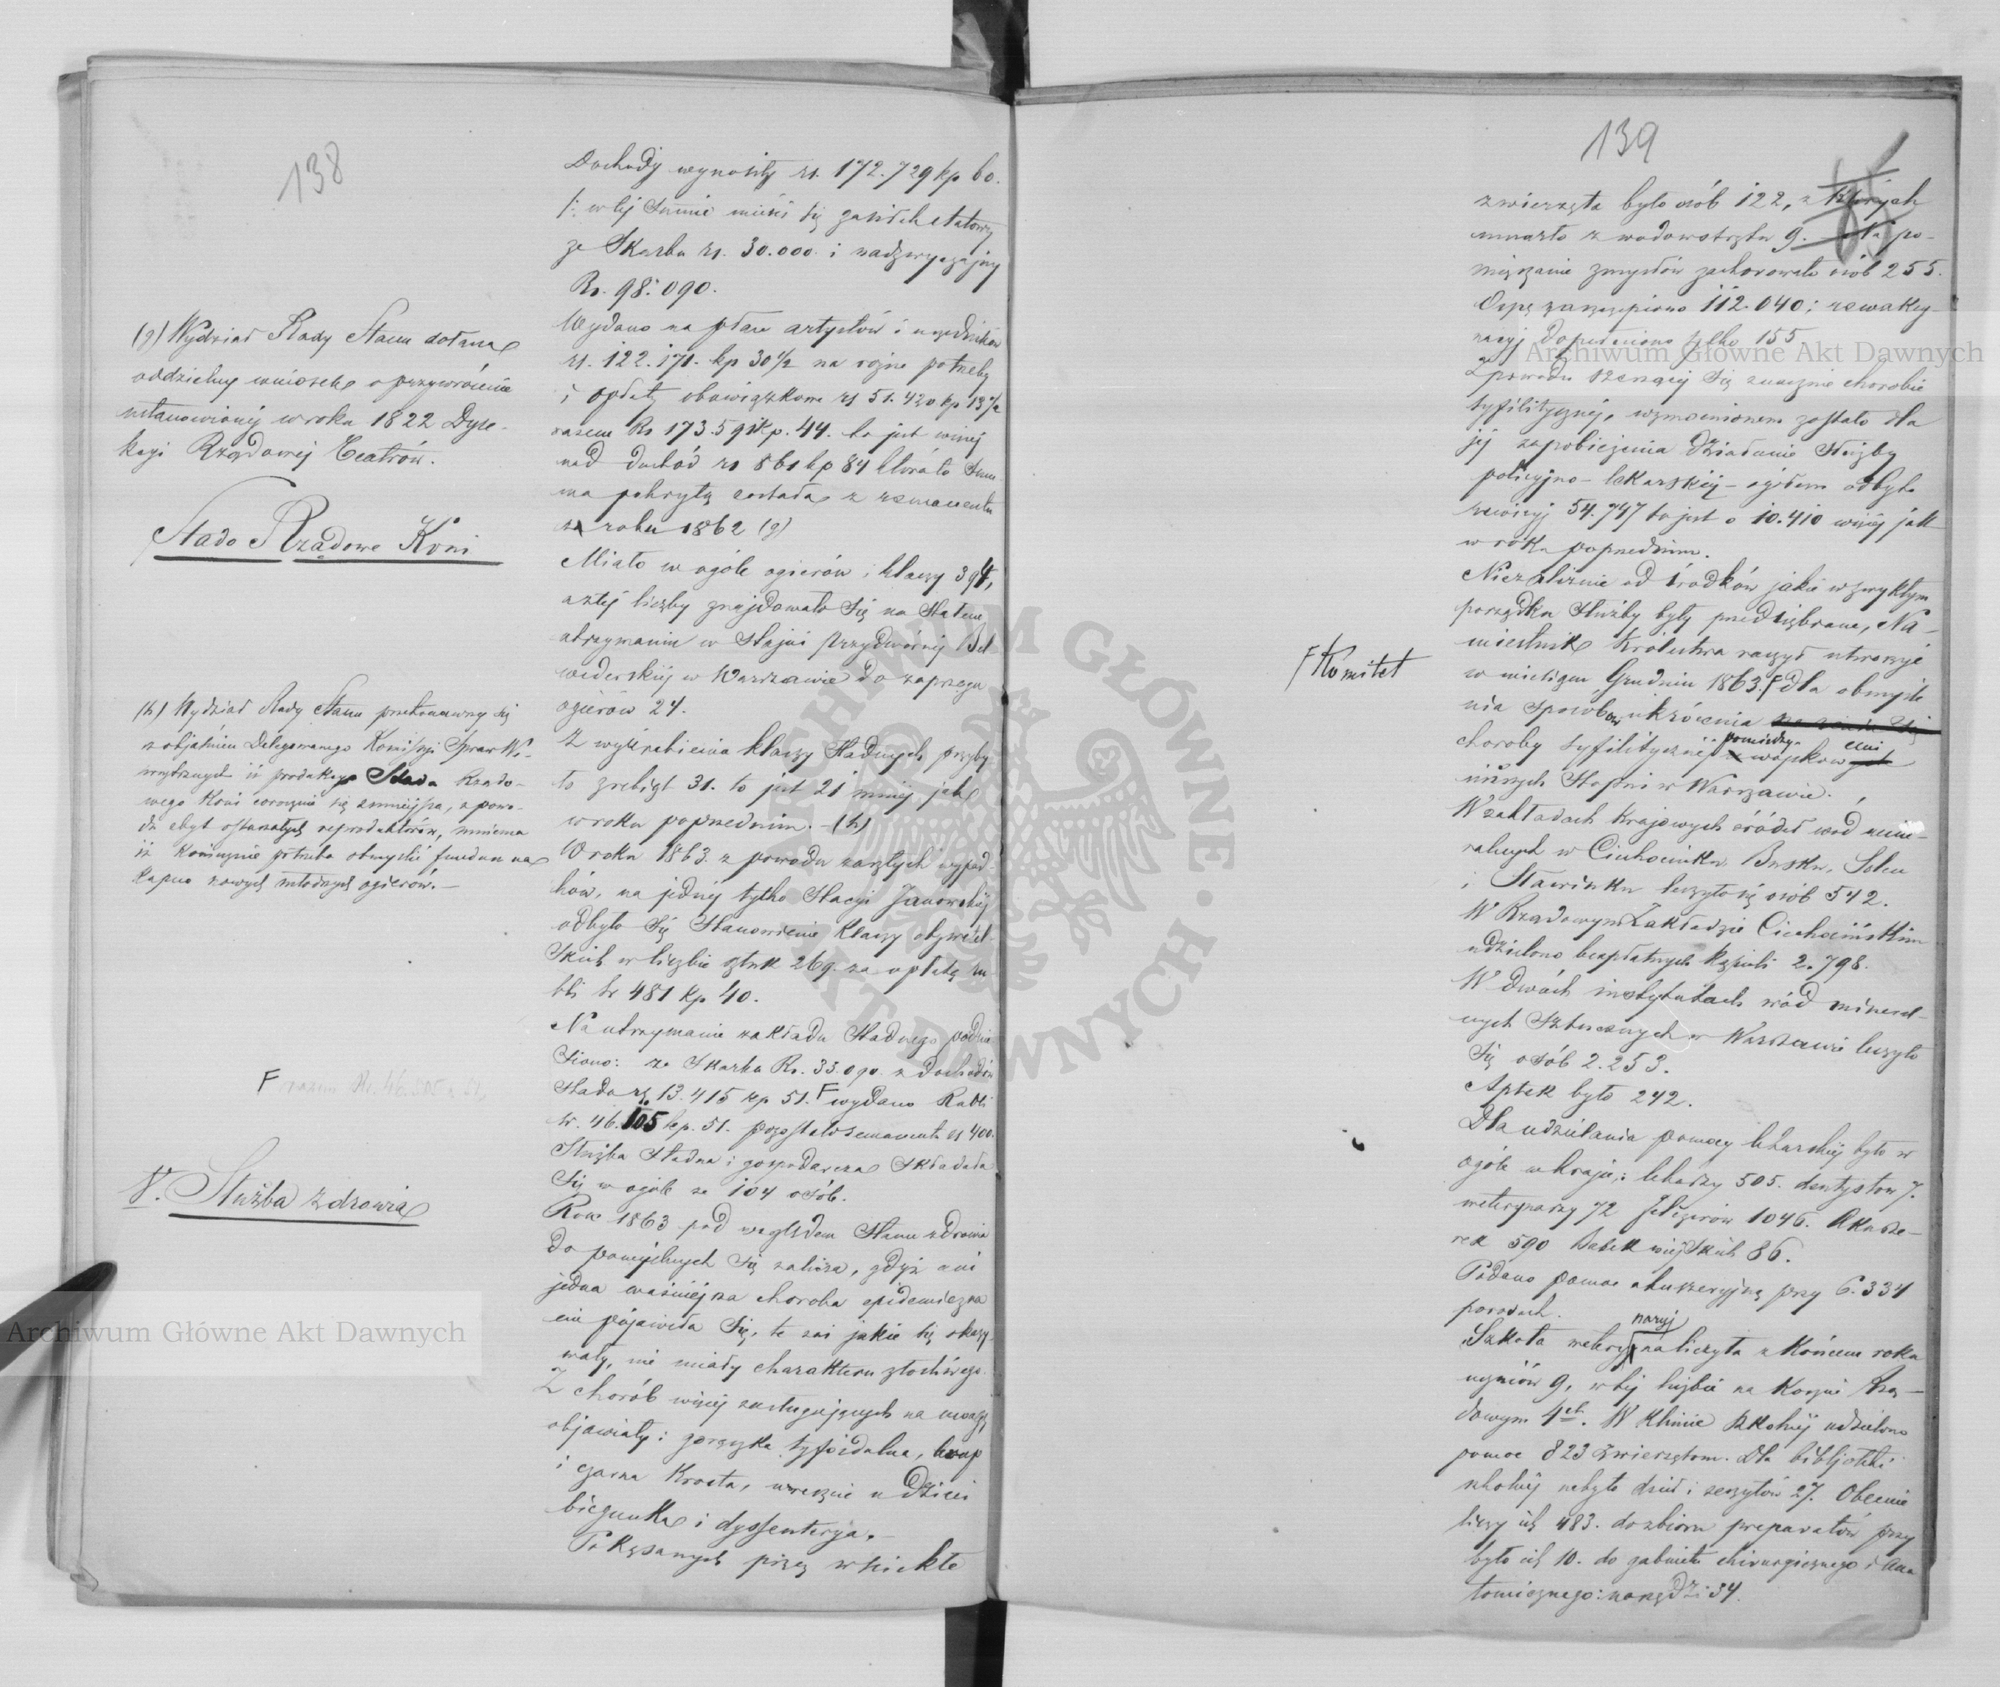 138
(g) Wydział Rady Stanu dołącza
oddzielny wniosek o przywrócenie
ustanowionej w roku 1822 Dyre-
kcyi Rządowej Teatrów.
Stado Rządowe Koni
(h) Wydział Rady Stanu przekonawszy się
z objaśnień Delegowanego Komisyi Spraw We-
wnętrznych iż produkcya Stada Rządo-
wego Koni corocznie się zmniejsza, z powo-
du zbyt ostarzałych reproduktorów, mniema
iż koniecznie potrzeba obmyślić fundusz na
kupno nowych młodszych ogierów. —
F razem Rs. 46.505 k 51,
V. Służba zdrowia
Dochody wynosiły rs. 172.729 kp 60.
/: w tej Summie mieści się zasiłek etatowy
ze Skarbu rs. 30.000 i nadzwyczajny
Rs. 98.090.
Wydano na płace artystów i urzędników
rs. 122.171. kp 30½ na rożne potrzeby
i opłaty obowiązkowe rs 51.420 kp 13½
razem Rs 173.591 kp. 44. to jest więcej
nad dochód rs 861 kp 84 która to Sum-
ma pokrytą została z remanentu
z roku 1862 (g)
Miało w ogóle ogierów i klaczy 394,
a z tej liczby znajdowało się na Stałem
utrzymaniu w Stajni Przydwornej Bel-
wederskiej w Warszawie do zaprzęgu
ogierów 24.
Z wyźrebienia klaczy Stadnych przyby-
ło źrebiąt 31. to jest 21 mniej jak
w roku poprzednim. — (h)
W roku 1863. z powodu zaszłych wypad-
ków, na jednej tylko Stacyi Janowskiej
odbyło się Stanowienie klaczy obywatel-
skich w liczbie sztuk 269. za opłatą ru-
bli sr 481 kp 40.
Na utrzymanie zakładu Stadnego podnie-
siono: ze Skarbu Rs. 33.090. z dochodów
Stada rs. 13.415 kp 51. F wydano Rubli
sr. 46.105 kp. 51. pozostało remanentu rs 400.
Służba Stadna i gospodarcza Składała
się w ogóle ze 104 osób.
Rok 1863 pod względem Stanu zdrowia
do pomyślnych się zalicza, gdyż ani
jedna ważniejsza choroba epidemiczna
nie pojawiła się, te zaś jakie się okazy-
wały, nie miały charakteru złośliwego.
Z chorób więcej zasługujących na uwagę
objawiały: gorączka tyfoidalna, krup
i czarna Krosta, wreszcie u dzieci
biegunka i dyssenterya. —
Pokąsanych przez wściekłe
139
85
zwierzęta było osób 122, z których
umarło z wodowstrętu 9. — Na po-
mięszanie zmysłów zachorowało osób 255.
Ospę zaszczepiono 112.040; rewakcy-
nacyj dopełniono tylko 155.
Z powodu szerzącej się znacznie choroby
syfilitycznej, wzmocnionem zostało dla
jej zapobieżenia Działanie Służby
policyjno-lekarskiej — ogółem odbyto
rewizyj 54.747 to jest o 10.410 więcej jak
w roku poprzednim.
Niezależnie od środków jakie w zwykłym
porządku Służby były przedsiębrane, Na-
miestnik Królestwa raczył utworzyć
w miesiącu Grudniu 1863. F dla obmyśle-
nia Sposobów ukrócenia
F Komitet
choroby syfilitycznej pomiędzy wojskowemi
niższych Stopni w Warszawie.
W zakładach Krajowych źródeł wód mine-
ralnych w Ciechocinku Busku, Solcu
i Sławinku leczyło się osób 542.
W Rządowym Zakładzie Ciechocińskim
udzielono bezpłatnych kąpieli 2.798.
W dwóch instytutach wód mineral-
nych Sztucznych w Warszawie leczyło
się osób 2.253.
Aptek było 242.
Dla udzielania pomocy lekarskiej było w
ogóle w kraju: lekarzy 505. dentystów 7.
weterynarzy 72 felczerów 1046. Akusze-
rek 590 Babek wiejskich 86.
Podano pomoc akuszeryjną przy 6.334
porodach.
Szkoła weterynaryjna liczyła z końcem roku
uczniów 9, w tej liczbie na Koszcie Rzą-
dowym 4ch. W Klinice szkolnej udzielono
pomoc 823 zwierzętom. Dla biblioteki
szkolnej nabyto dzieł i zeszytów 27. Obecnie
liczy ich 483. do zbioru preparatów przy-
było ich 10. do gabinetu chirurgicznego i ana-
tomicznego: narzędzi 34.
Archiwum Główne Akt Dawnych
Archiwum Główne Akt Dawnych
ARCHIWUM GŁÓWNE AKT DAWNYCH